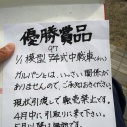 優勝賞品
97
1/1 模型 74式中戦車(みに)
ガルパンとは、いっさい関係が
ありませんので、ご承知おきください。
現状引渡しで転売禁止です。
4月中に、引取りに来て下さい。